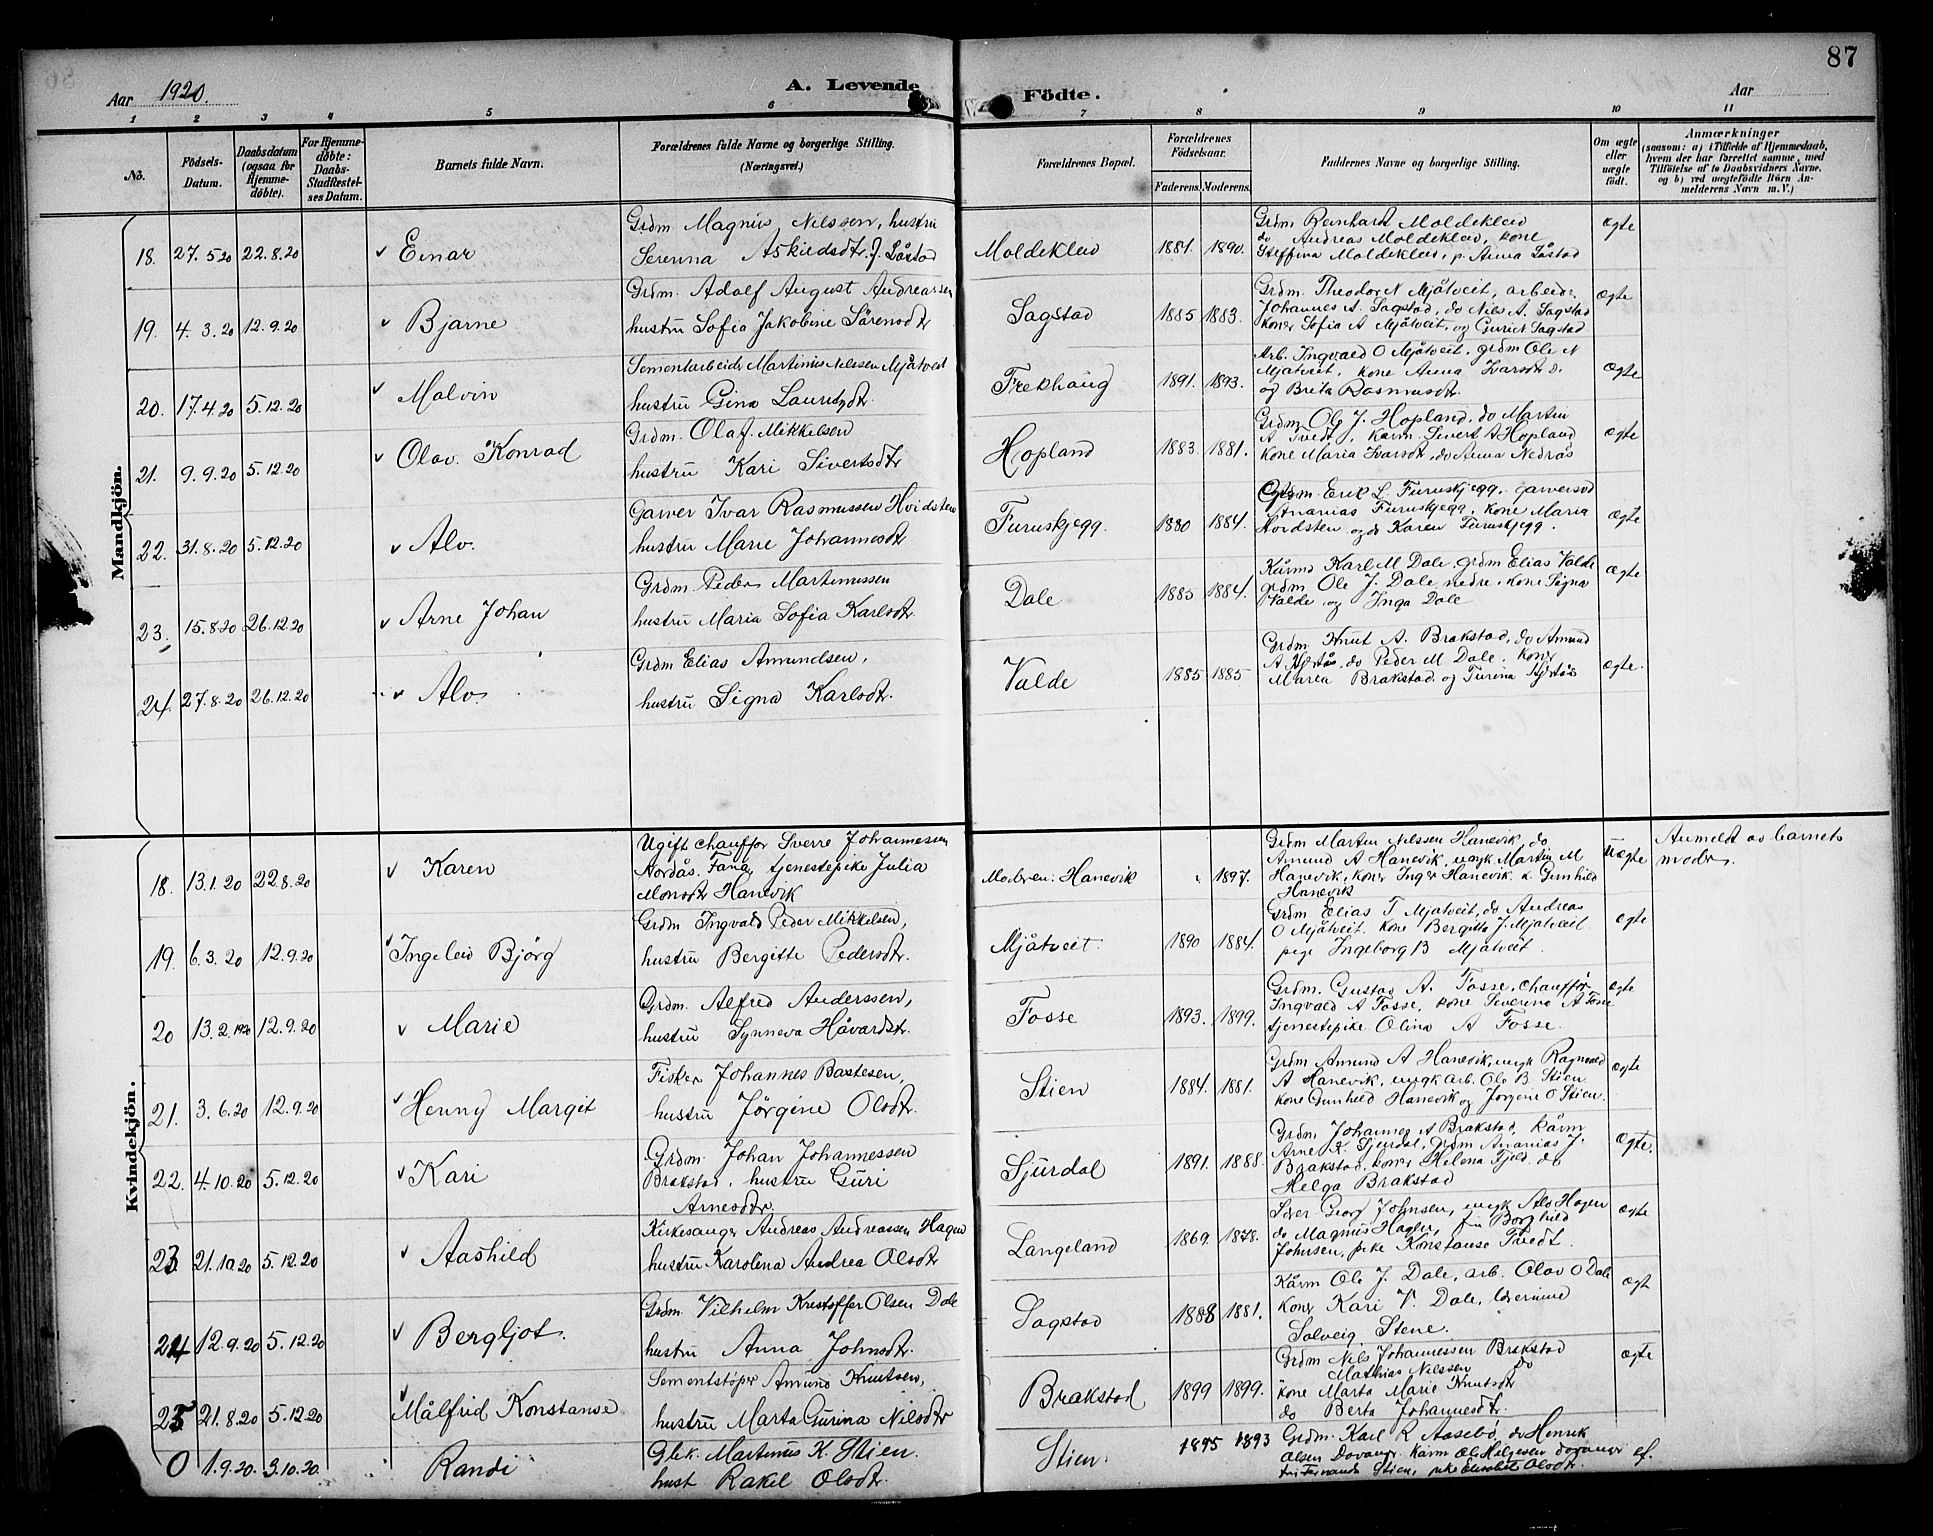 Aar 1920.
A. Levende Födte.
Aar
87
1 2 3 4 5 6 7 8 9 10 11
No.
Födsels-Datum.
Daabsdatum (ogsaa for Hjemme-døbte).
For Hjemme-døbte: Daabs-Stadfæstelses Datum.
Barnets fulde Navn.
Forældrenes fulde Navne og borgerlige Stilling. (Næringsvei.)
Forældrenes Bopæl.
Forældrenes Fødselsaar.
Faderens. Moderens.
Faddernes Navne og borgerlige Stilling.
Om ægte eller uægte født.
Anmærkninger
(saasom: a) i Tilfælde af Hjemmedaab, hvem der har forrettet samme, med Tilføielse af to Daabsvidners Navne, og b) ved uægtefødte Børn Anmelderens Navn m. V.)
Mandkjön.
18. 27.5.20 22.8.20 Einar
Grdm Magnus Nilssen, hustru
Serenna
Moldekleiv 1881. 1890.
Grdm Reinhard Moldekleiv
do Andreas Moldekleiv, kone
Steffina Moldekleiv, p. Anna Låstad
ægte
19. 4.3.20 12.9.20 Bjarne
Grdm. Adolf August Andreassen
hustru Sofia Jakobine Sörensdtr
Sagstad 1885 1883.
Grdm. Theodor N Mjåtveit, arbeidr.
Johannes A. Sagstad, do Nils A. Sagstad
koner Sofia A Mjåtveit, og Guri N Sagstad
ægte
20. 17.4.20 5.12.20 Malvin
Sementarbeidr Martinus Nilssen Mjåtveit
hustru Gina
Frekhaug 1891. 1893.
Arb. Ingvald O Mjåtveit, grdm Ole N
Mjåtveit, kone Anna Ivarsdtr.
og Brita Rasmusdtr.
ægte
21. 9.9.20 5.12.20 Olav Konrad
Grdm. Olaf Mikkelsen
hustru Kari Sivertsdtr
Hopland 1883. 1881.
Grdm Ole J. Hopland, do Martin
A Tvedt, kårm. Sivert A Hopland
kone Maria Ivarsdtr, do Anna Nedrås
ægte
22. 31.8.20 5.12.20 Alv.
Garver Ivar Rasmussen Hvidsten
hustru Marie Johannesdtr
Furuskjegg. 1880 1884.
Grdm. Erik L. Furuskjegg, garversvd
Ananias Furuskjegg, kone Maria
Hvidsten og do Karen Furuskjegg.
ægte
23. 15.8.20 26.12.20 Arne Johan
Grdm. Peder Martinussen
hustru Maria Sofia Karlsdtr
Dale 1885 1884.
Kårmd Karl M Dale, grdm Elias Valde
grdm Ole J. Dale nedre, kone Signa
Valde og Inga Dale
ægte
24. 27.8.20 26.12.20 Alv.
Grdm Elias Amundsen,
hustru Signa Karlsdtr.
Valde 1885 1885
Grdm. Knut A. Brakstad, do Amund
A Hjertås, do Peder M Dale. koner
Maria Brakstad og Turina Hjertås
ægte.
Kvindekjön.
18. 13.1.20 22.8.20 Karen
Ugift chauffør Sverre Johannessen
Nordås. Fana, tjenestepike Julia
Monsdtr Hanevik
Moderen: Hanevik " 1897.
Grdm Martin Nilssen Hanevik, do
Amund A Hanevik, ungk. Martin M
Hanevik, koner Inger Hanevik & Gunhild
Hanevik
uægte
Anmeldt av barnets moder.
19. 6.3.20 12.9.20 Ingeleiv Bjørg
Grdm Ingvald Peder Mikkelsen,
hustru Bergitte Pedersdtr.
Mjåtveit. 1890 1884.
Grdm Elias T Mjåtveit, do Andreas
O Mjåtveit, kone Bergitta J. Mjåtveit
pige Ingeborg B Mjåtveit.
ægte
20 13.2.1920 12.9.20 Marie
Grdm. Alfred Anderssen,
hustru Synneva Håvardstr.
Fosse 1893. 1899.
Grdm. Gustav A. Fosse, chauffør
Ingvald A Fosse, kone Severina A Fosse
tjenestepike Olina A Fosse.
ægte
21. 3.6.20 12.9.20 Henny Margit
Fisker Johannes Bastesen,
hustru Jørgine Olsdtr.
Stien 1884. 1881.
Grdm Amund A Hanevik, ungk Ragnvald
A Hanevik, ungk arb. Ole B. Stien
kone Gunhild Hanevik og Jørgine O Stien.
ægte
22. 4.10.20 5.12.20 Kari
Grdm. Johan Johannessen
Brakstad, hustru Guri
Arnesdtr.
Sjurdal 1891. 1888.
Grdm. Johannes A Brakstad, kårm
Arne K. Sjurdal, grdm Ananias J.
Brakstad, koner Helena Fjeld, do
Helga Brakstad
ægte.
23. 21.10.20 5.12.20 Aashild
Kirkesanger Andreas Andreassen Hagen
hustru Karolina Andrea Olsdtr
Langeland 1869. 1878.
Georg Johnsen, ungk Alv Hagen
do Magnus Hagen, fru Borghild
Johnsen, pike Konstanse Tvedt.
ægte
24 12.9.20 5.12.20 Bergljot.
Grdm. Vilhelm Kristoffer Olsen Dale
hustru Anna Johnsdtr.
Sagstad 1888 1881.
Kårm Ole J. Dale, arb. Olav O Dale
koner Kari V. Dale, lærerinne
Solveig Stene.
ægt
25 21.8.20 5.12.20 Målfrid Konstanse
Sementstøper Amund Knutsen,
hustru Marta Gurina Nilsdtr
Brakstad 1899 1899.
Grdm Nils Johannessen Brakstad
Mathias Nilssen do
kone Marta Marie Knutsdtr
do Berta Johannesdtr.
ægte
0 1.9.20. 3.10.20. Randi
Gbk. Martinus K. Stien.
hust Rakel Olsdtr.
Stien. 1895 1893
Grdm. Karl R Aasebø, do Henrik
Olsen Dovanger. Kårm Ole Helgesen Dovanger
fru Fernanda Stien, pike Elisabet Olsdtr.
ef.